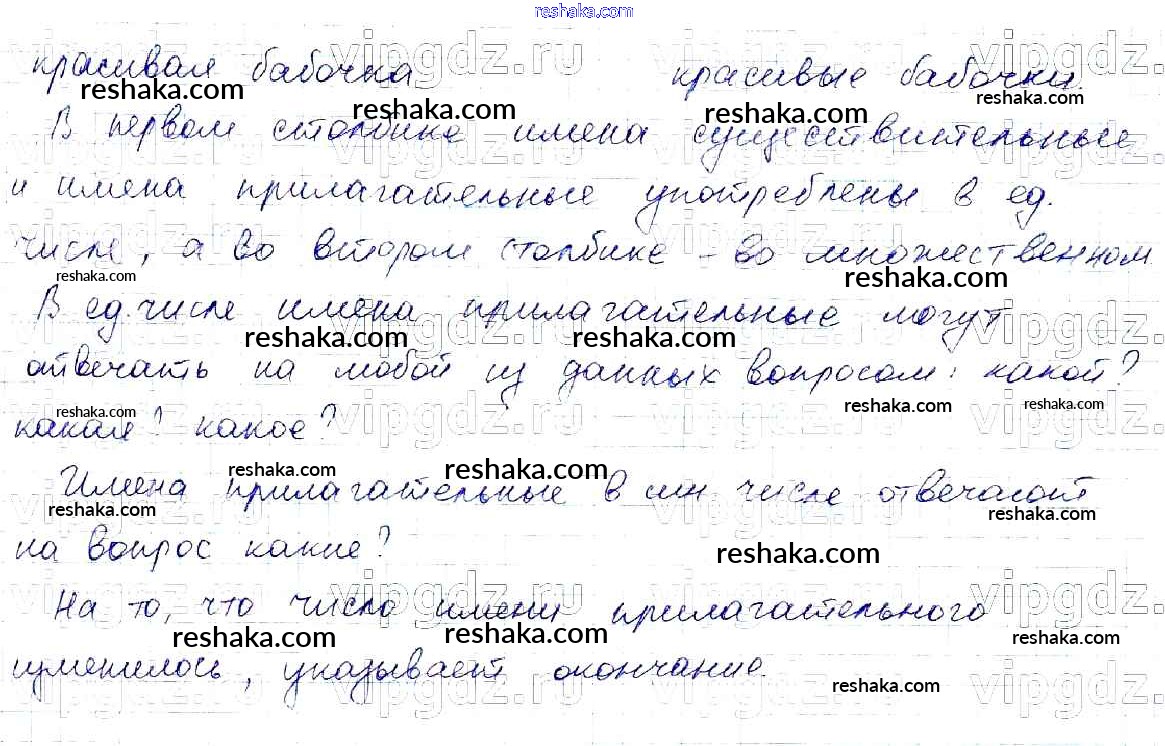 reshaka.com
красивая бабочка красивые бабочки.
В первом столбике имена существительные
и имена прилагательные употреблены в ед.
числе, а во втором столбике - во множественном
В ед. числе имена прилагательные могут
отвечать на любой из данных вопросом: какой?
какая? какое?
Имена прилагательные в мн. числе отвечают
на вопрос какие?
На то, что число имени прилагательного
изменилось, указывает окончание.